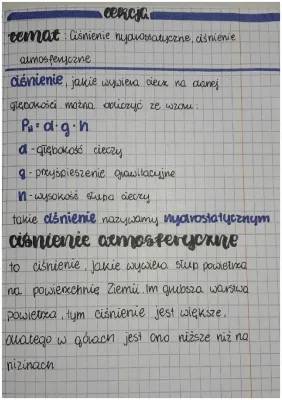 lekcja
temat: Ciśnienie hydrostatyczne, ciśnienie
atmosferyczne
ciśnienie, jakie wywiera ciecz na danej
głębokości można obliczyć ze wzoru:
Ph = d · g · h
d - głębokość cieczy
g - przyśpieszenie grawitacyjne
h - wysokość słupa cieczy
takie ciśnienie nazywamy hydrostatycznym
ciśnienie atmosferyczne
to ciśnienie, jakie wywiera słup powietrza
na powierzchnię Ziemii. Im grubsza warstwa
powietrza, tym ciśnienie jest większe,
dlatego w górach jest ono niższe niż na
nizinach